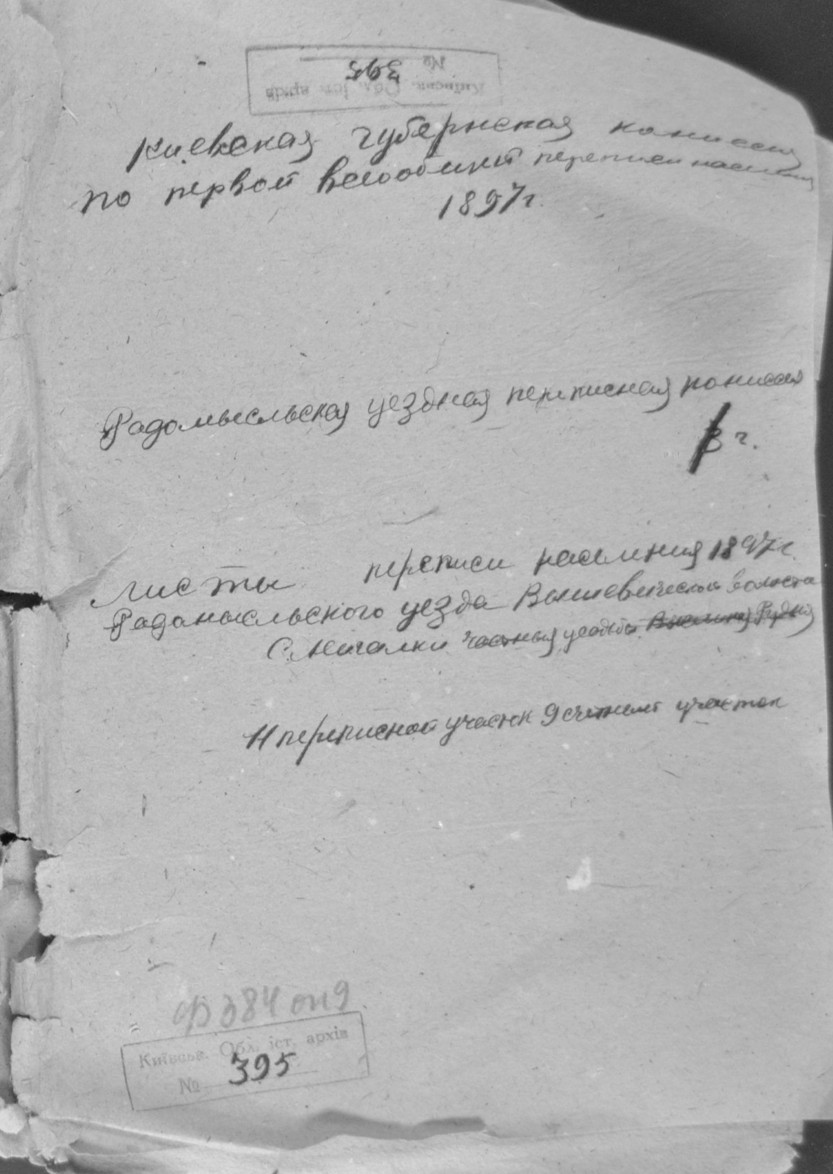 Київськ. Обл. іст. архів
№ 395
Киевская губернская комиссия
по первой всеобщей переписи населения
1897г.
Радомысльская уездная переписная комиссия
г.
Листы переписи населения 1897г.
Радомысльского уезда Вышевической волости
С. Мигалки частныя усадьбы Рудня
11 переписной участок 9 счетный участок
Ф 384 оп 9
Київськ. Обл. іст. архів
№ 395